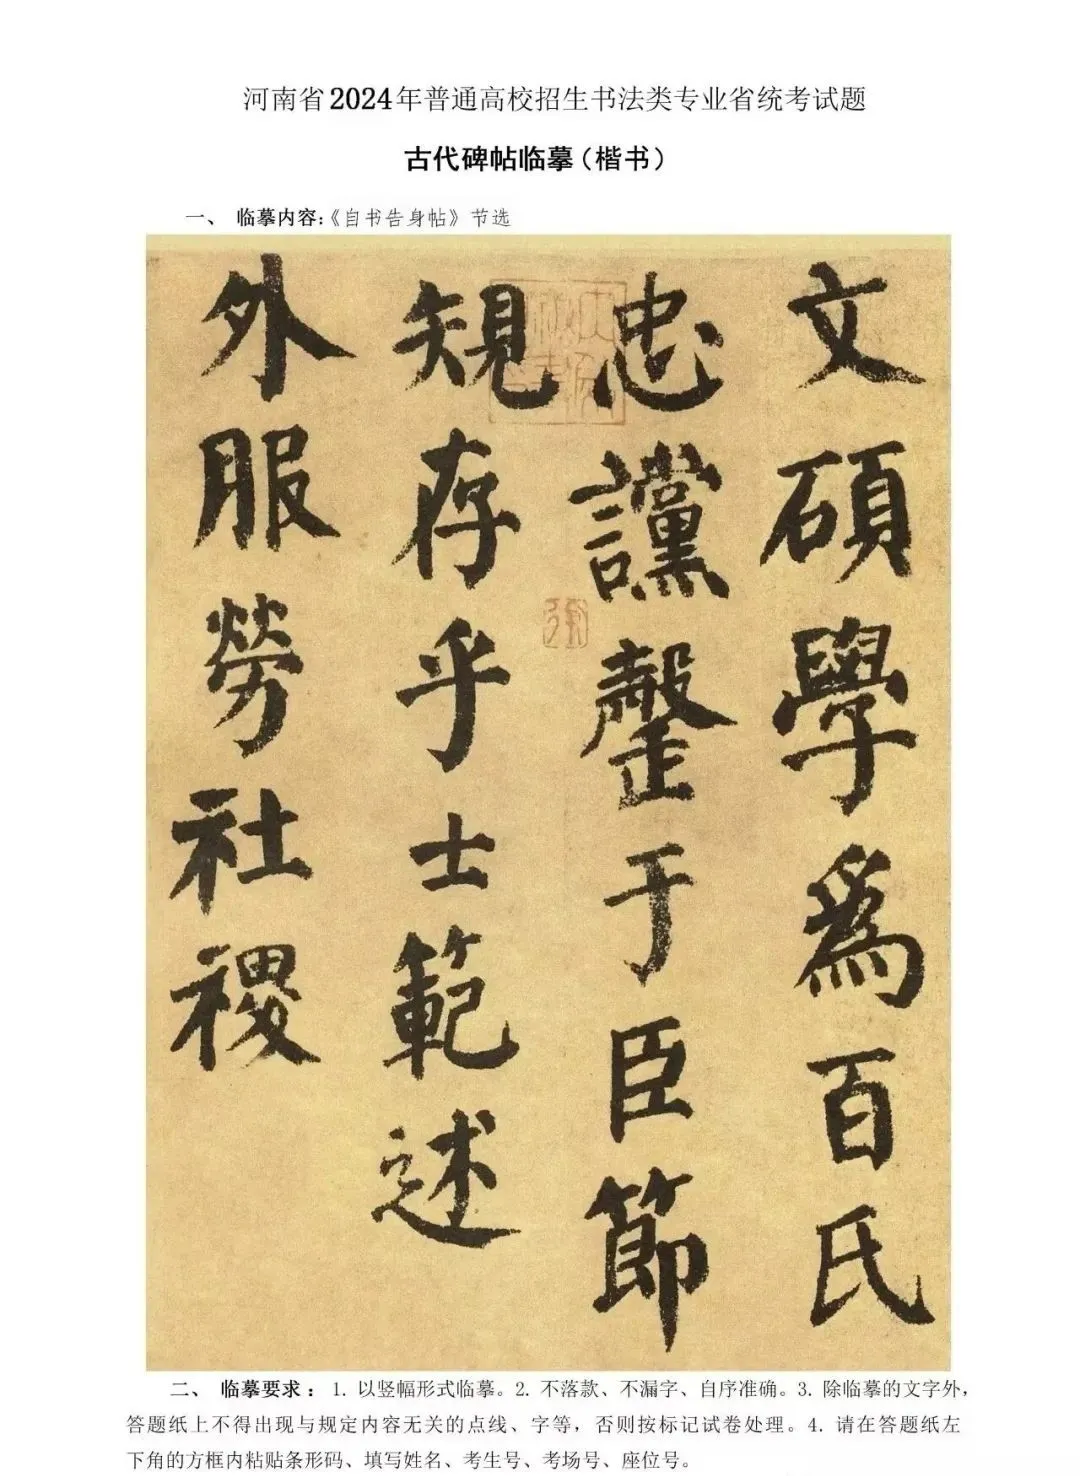 河南省2024年普通高校招生书法类专业省统考试题
古代碑帖临摹（楷书）
一、 临摹内容:《自书告身帖》节选
文碩學為百氏
忠讜罄于臣節
規存乎士範述
外服勞社稷
二、 临摹要求： 1. 以竖幅形式临摹。2. 不落款、不漏字、自序准确。3. 除临摹的文字外，
答题纸上不得出现与规定内容无关的点线、字等，否则按标记试卷处理。4. 请在答题纸左
下角的方框内粘贴条形码、填写姓名、考生号、考场号、座位号。